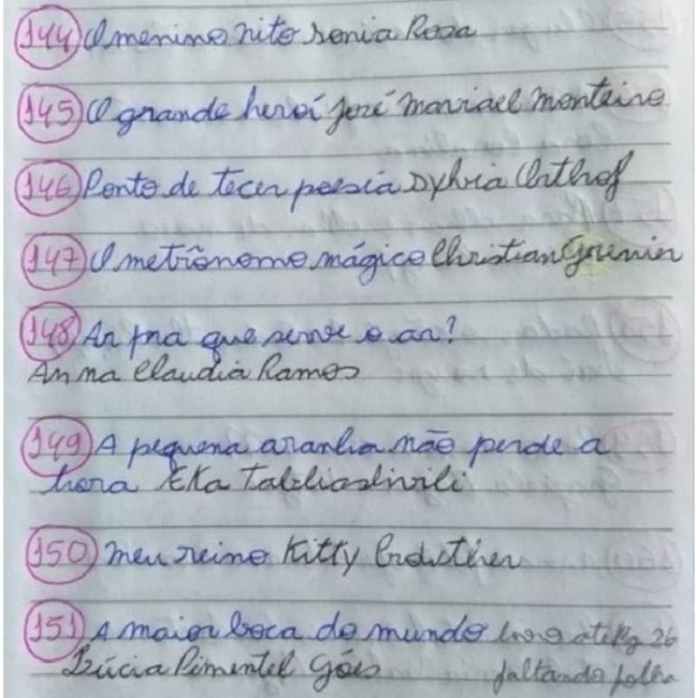 144 O menino nito sonia Rosa
145 O grande heroí José maviael monteiro
146 Ponto de tecer poesia Sylvia Orthof
147 O metrônomo mágico Christian Grenier
148 Ar pra que serve o ar?
Anna Claudia Ramos
149 A pequena aranha não perde a
hora Eka
150 meu reino Kitty Crowther
151 A maior boca do mundo até Pg 26
Lúcia Pimentel Góes faltando folha